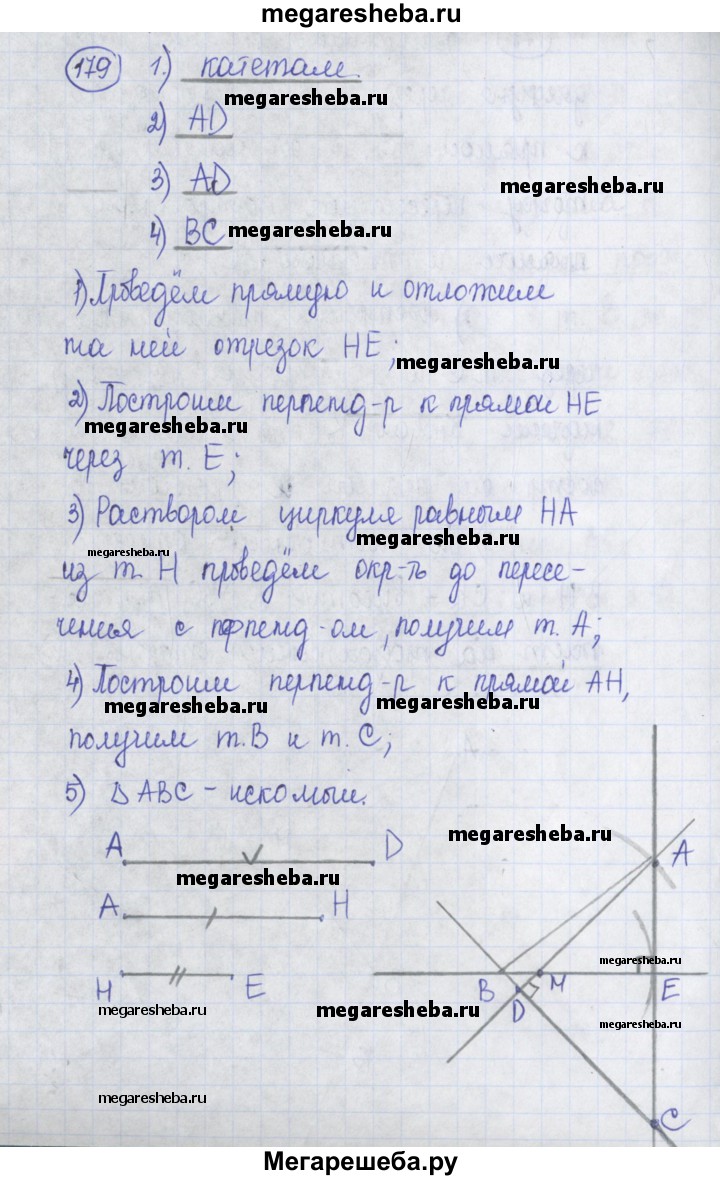 megaresheba.ru
179 1.) катетам.
megaresheba.ru
2) AD
3) AD
megaresheba.ru
4) BC megaresheba.ru
1) Проведём прямую и отложим
на ней отрезок HE;
megaresheba.ru
2) Построим перпенд-р к прямой HE
megaresheba.ru
через т. E;
3) Раствором циркуля равным HA
megaresheba.ru
megaresheba.ru
из т. H проведём окр-ть до пересе-
чения с перпенд-ом, получим т. A;
4) Построим перпенд-р к прямой AH,
megaresheba.ru megaresheba.ru
получим т. B и т. C;
5) Δ ABC - искомый.
megaresheba.ru
A D
megaresheba.ru
A H
A
megaresheba.ru
H E
B M E
D
megaresheba.ru megaresheba.ru
megaresheba.ru
megaresheba.ru
C
Мегарешеба.ру